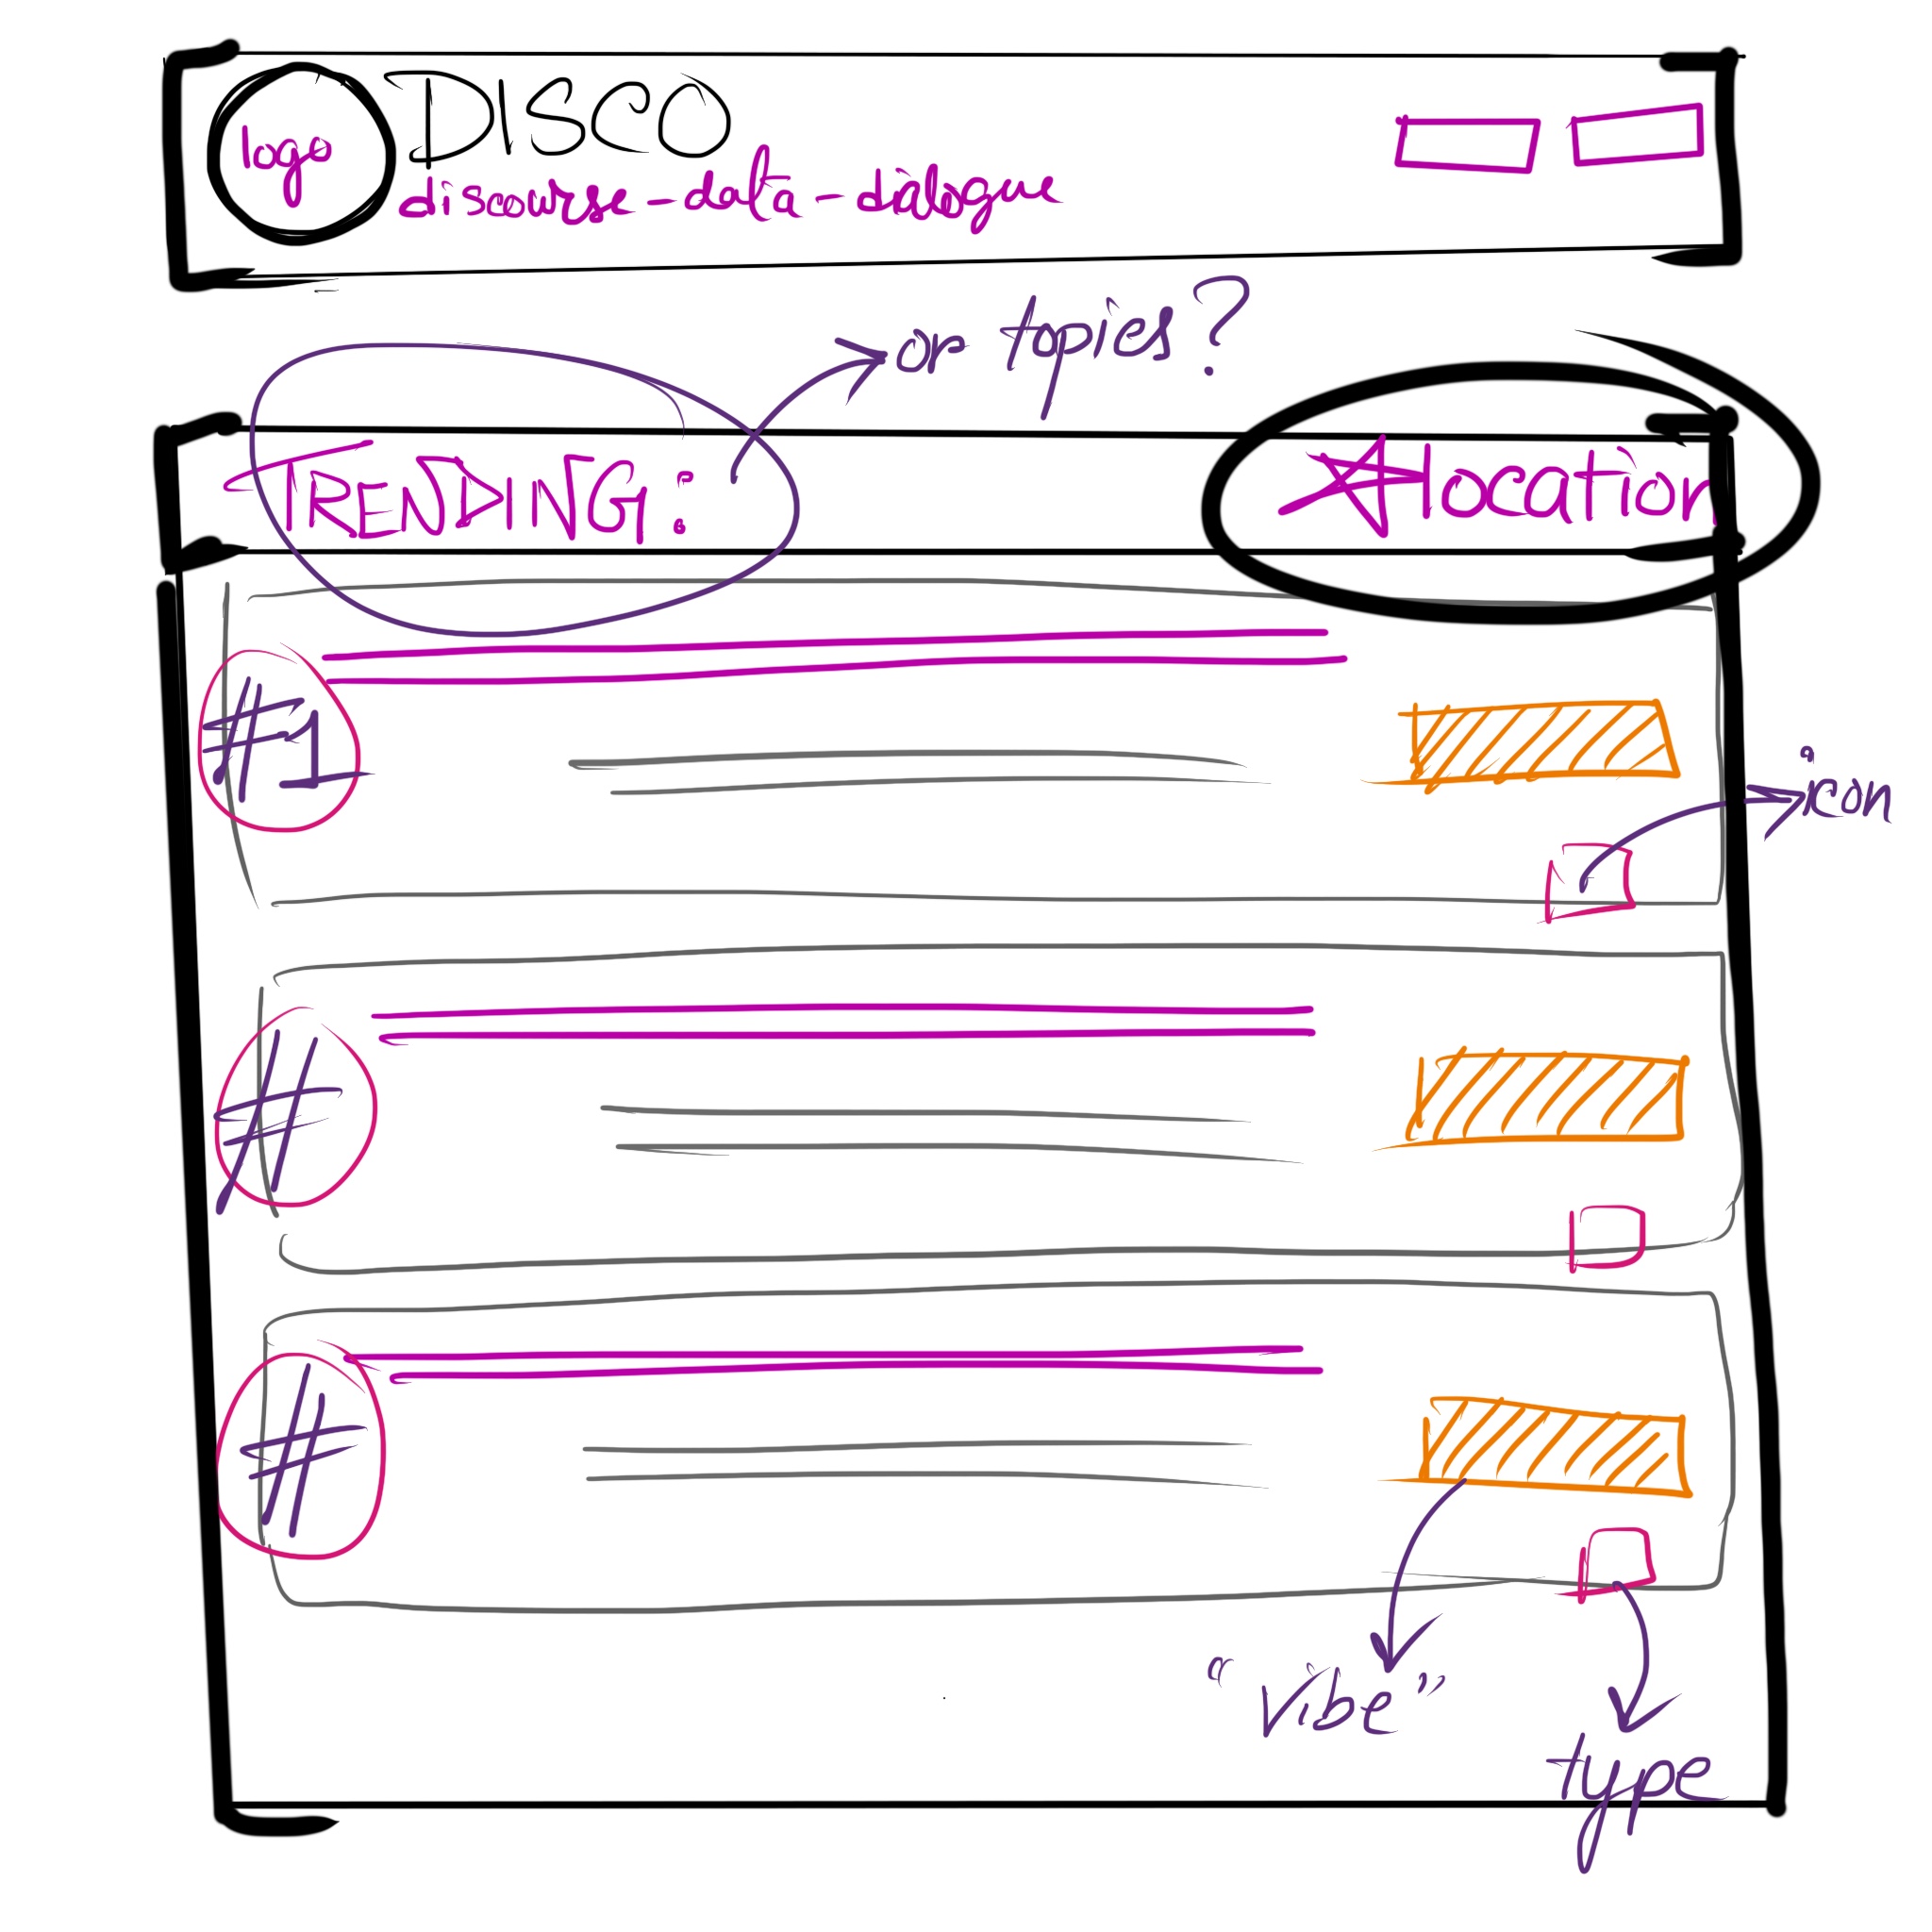 logo
DISCO
discourse-data-dialogue
or topics?
TRENDING:
location
#1
icon
#
#
"vibe"
type